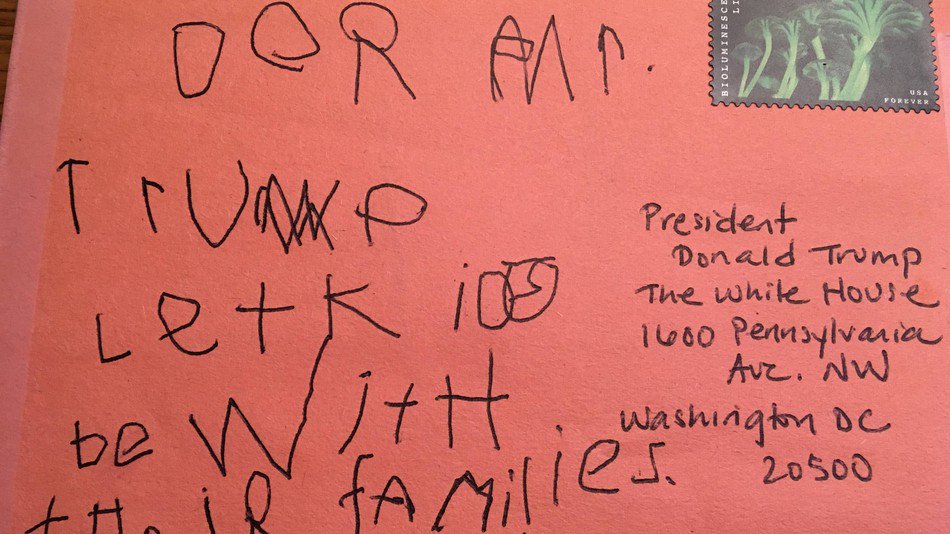 DeR Mr.
TrUMP
Let KiDS
be WitH
tHeiR fAMilies.
BIOLUMINESCE
LI
USA
FOREVER
President
Donald Trump
The White House
1600 Pennsylvania
Ave. NW
Washington DC
20500